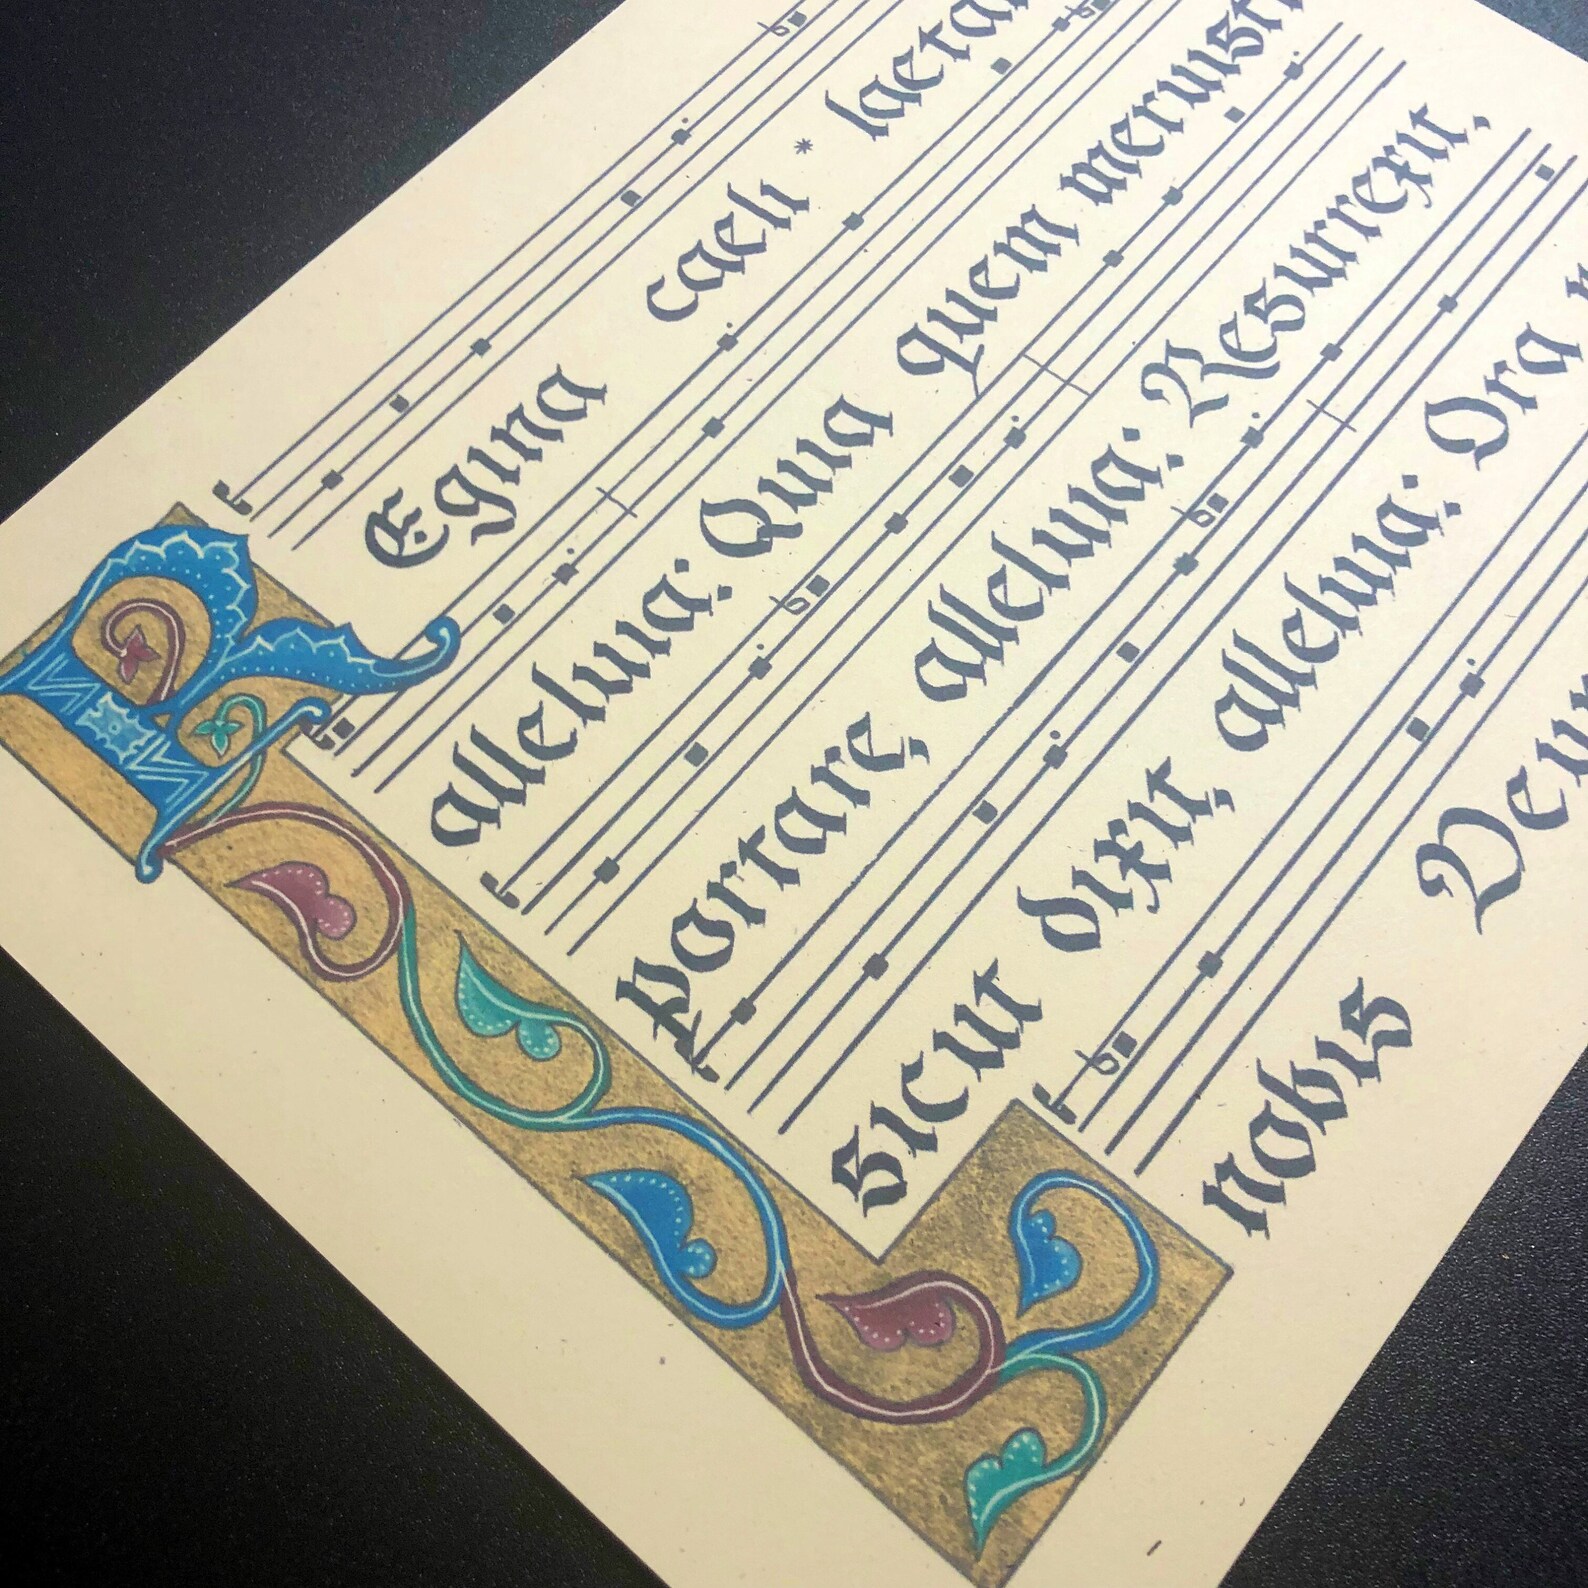 REgina caeli * laeta
alleluia: Quia quem meruisti
portare, alleluia: Resurrexit,
sicut dixit, alleluia: Ora
nobis Deum